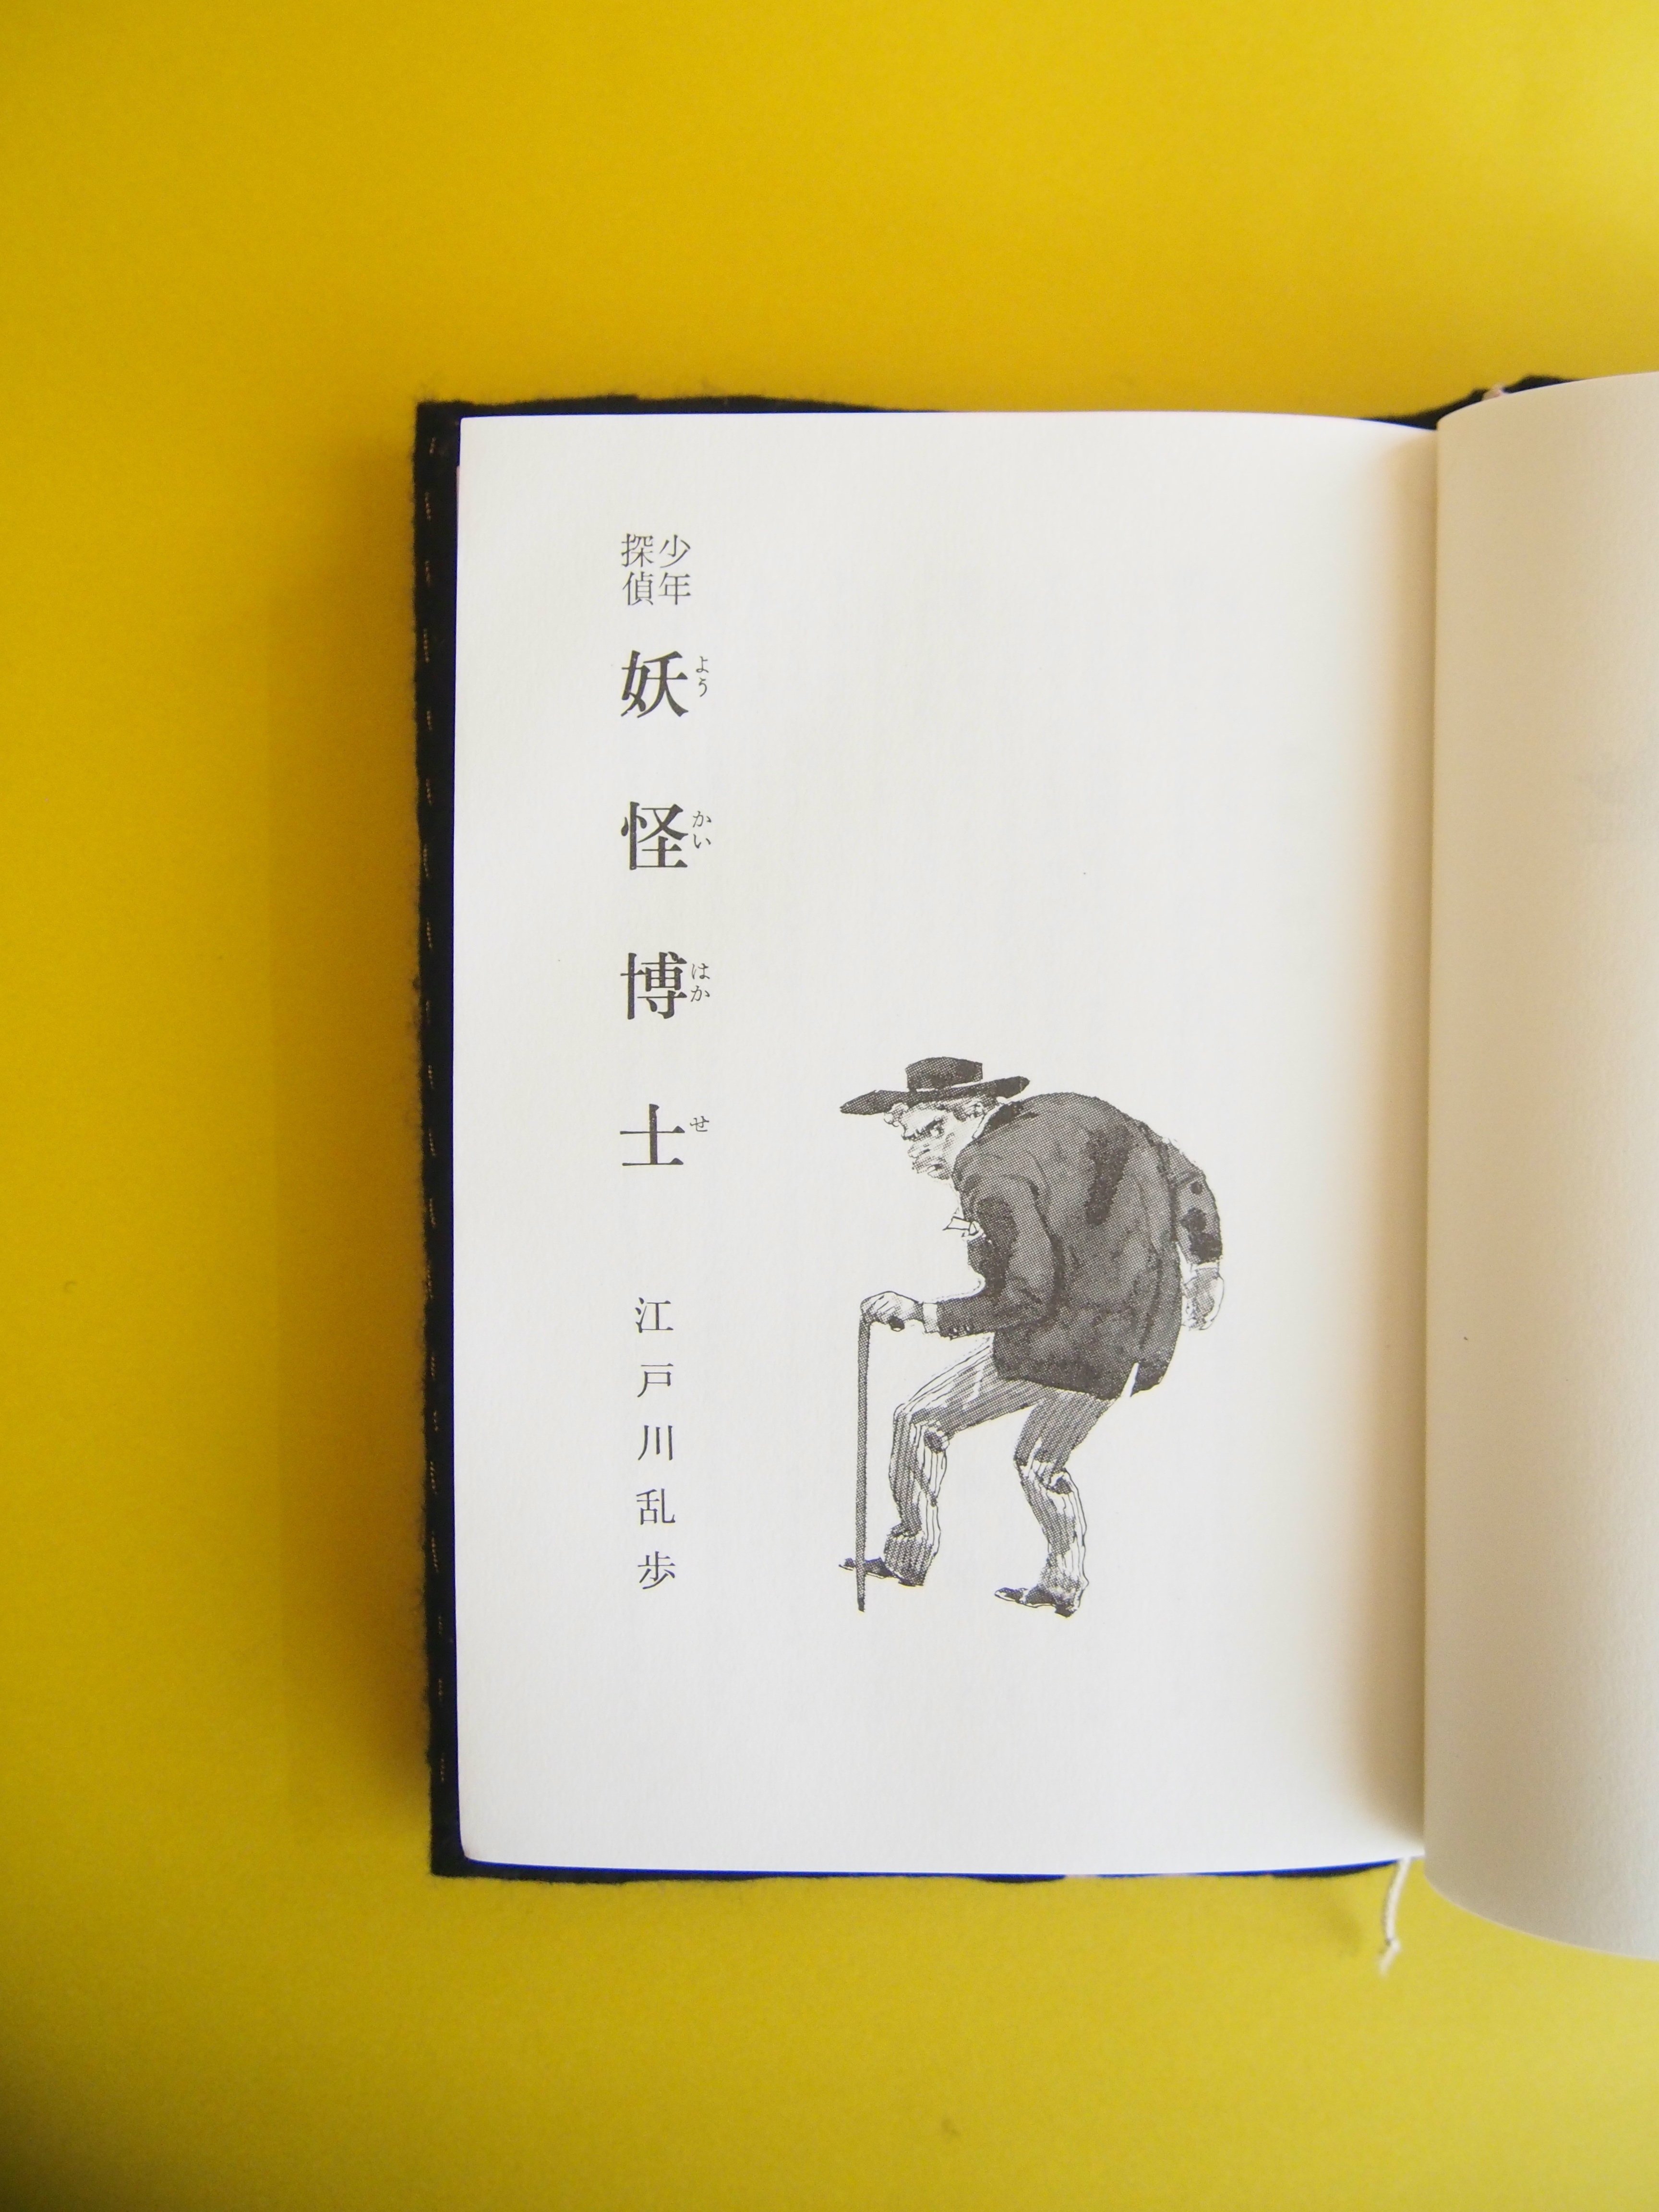 少年
探偵
妖怪博士
よう かい はか せ
江戸川乱歩